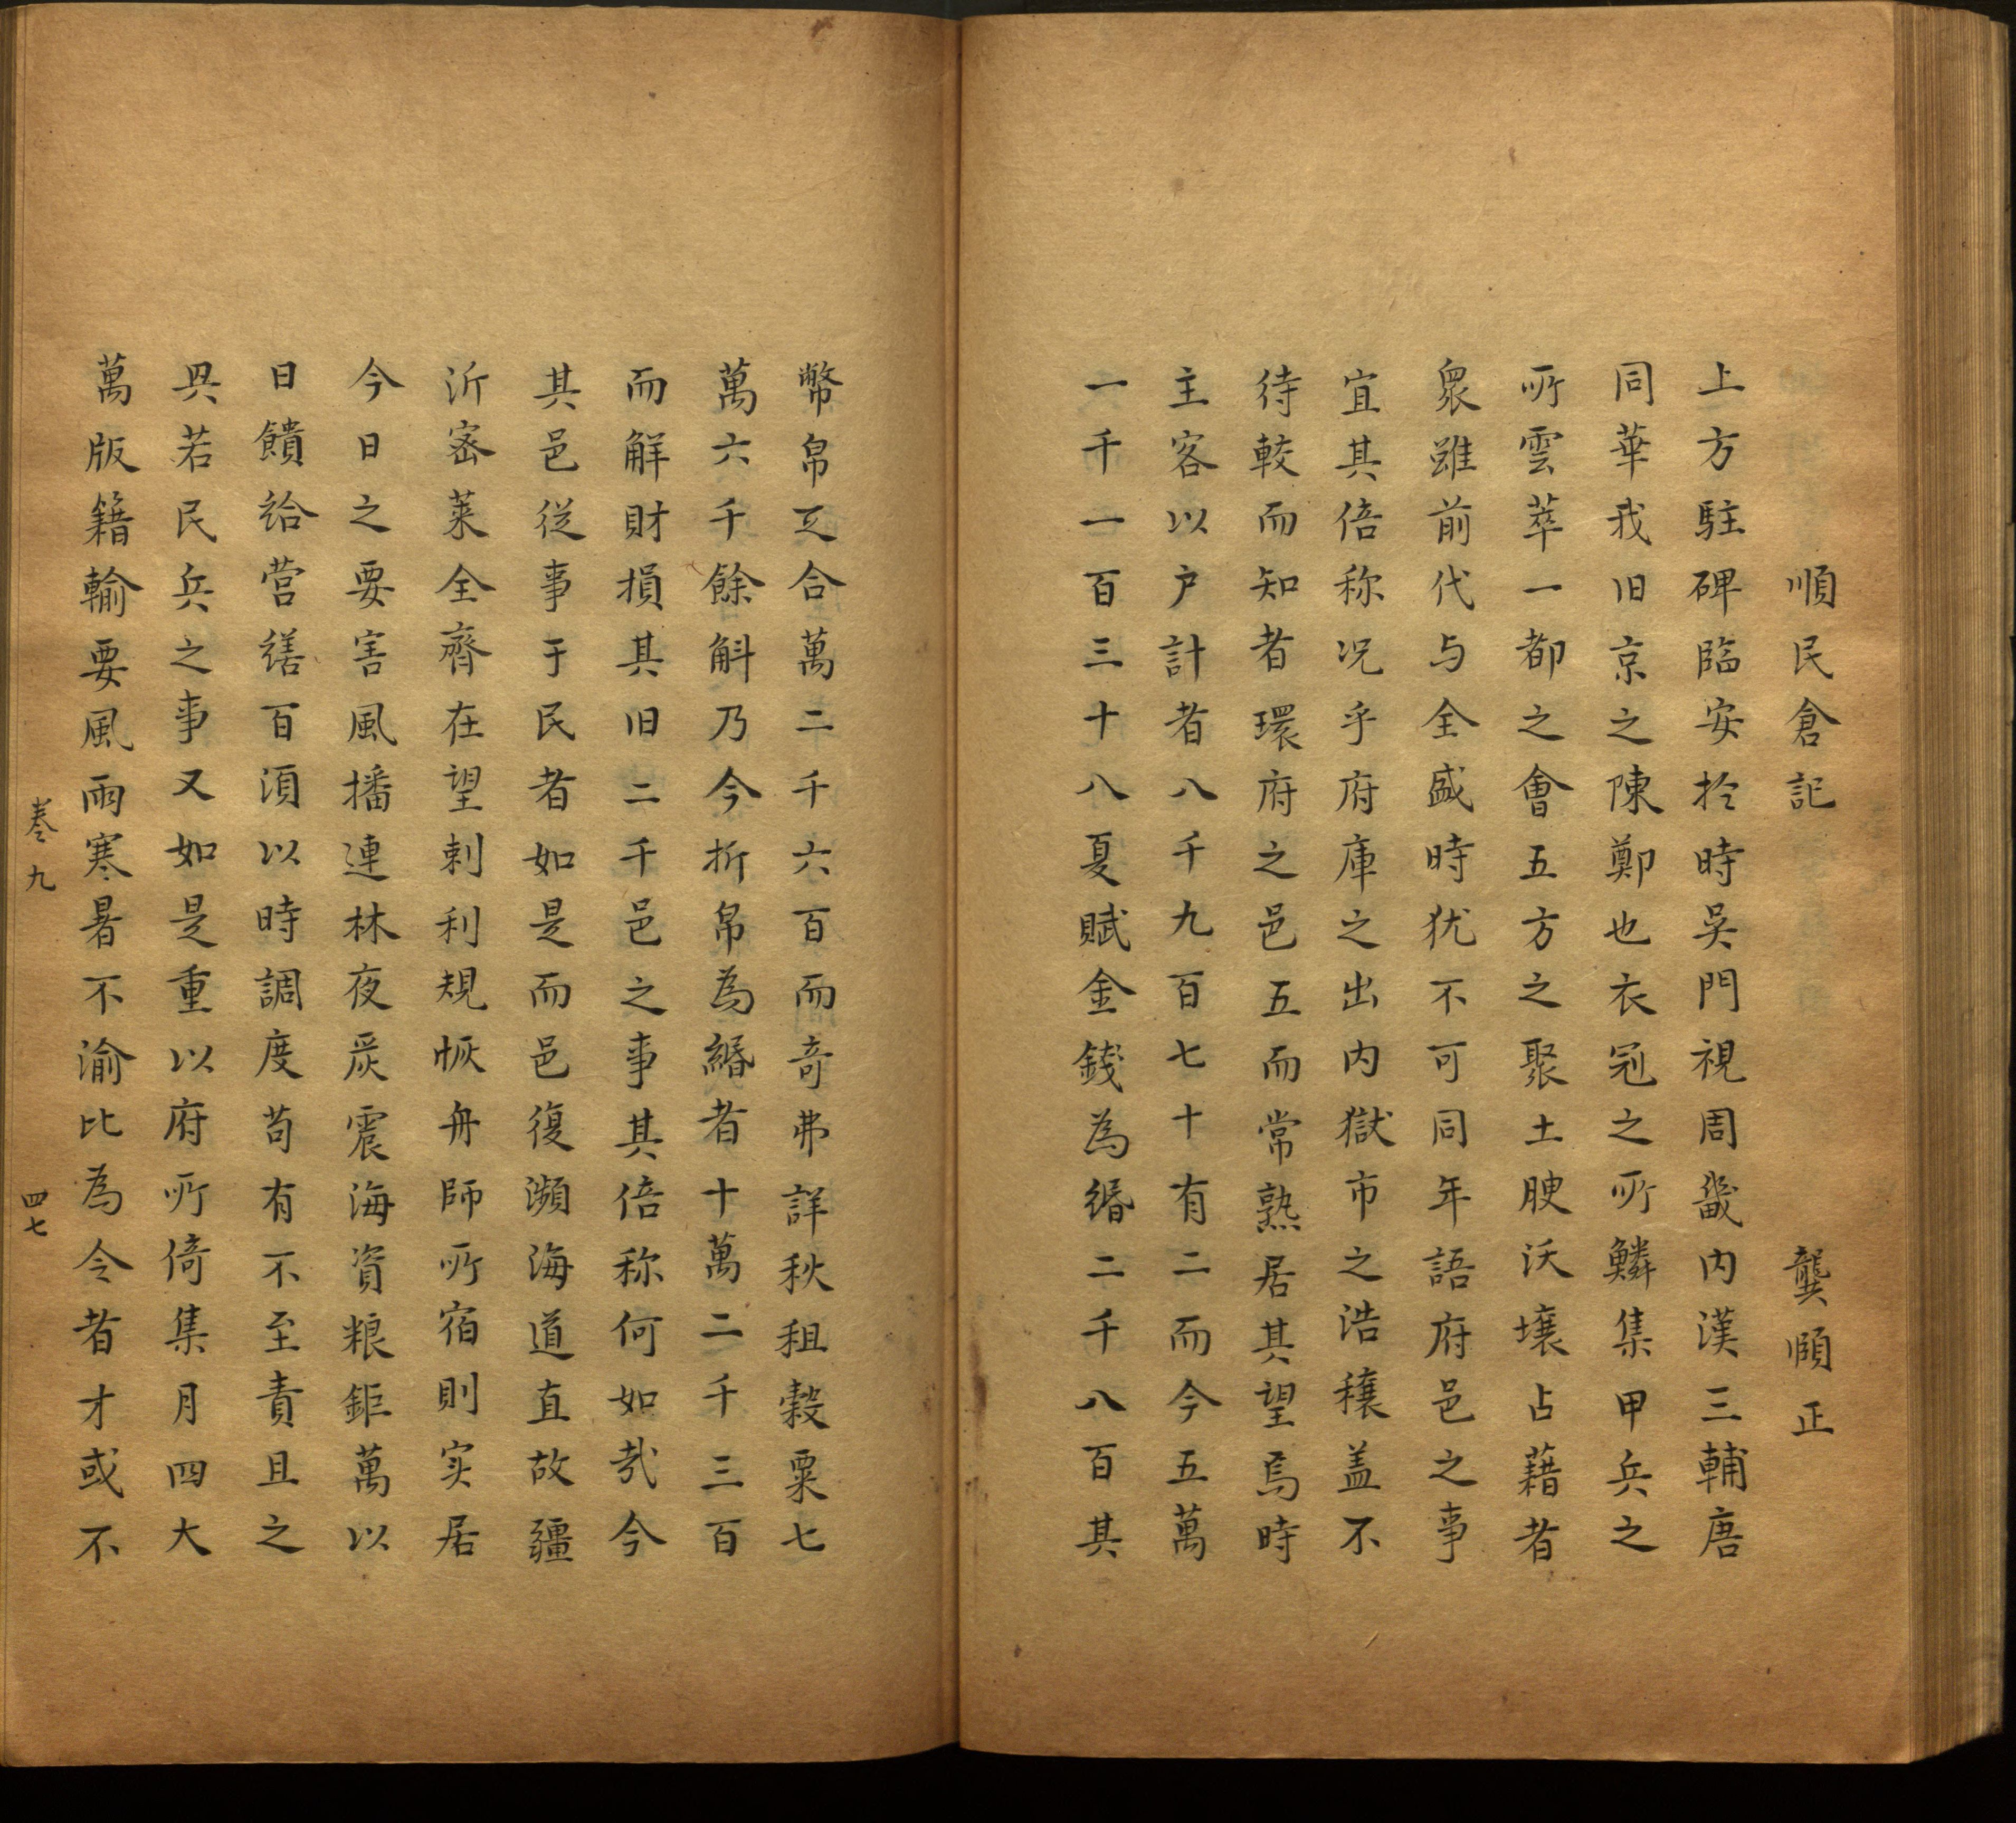 順民倉記　龔頤正
上方駐碑臨安扵時吳門視周畿内漢三輔唐
同華我旧京之陳鄭也衣冠之所鱗集甲兵之
所雲萃一都之會五方之聚土腴沃壤占藉者
衆雖前代与全盛時犹不可同年語府邑之事
宜其倍称况乎府庫之出内獄市之浩穰盖不
待較而知者環府之邑五而常熟居其望焉時
主客以户計者八千九百七十有二而今五萬
一千一百三十八夏賦金錢為緡二千八百其
幣帛疋合萬二千六百而奇弗詳秋租穀粟七
萬六千餘斛乃今折帛為緡者十萬二千三百
而觧財損其旧二千邑之事其倍称何如㢤今
其邑従事于民者如是而邑復瀕海道直故疆
沂宻萊全齊在望剌利規恢舟師所宿則实居
今日之要害風播連林夜炭震海資粮鉅萬以
日饋給营繕百湏以時調度苟有不至責且之
具若民兵之事又如是重以府所倚集月四大
萬版籍輸要風雨寒暑不渝比為令者才或不
卷九　四七